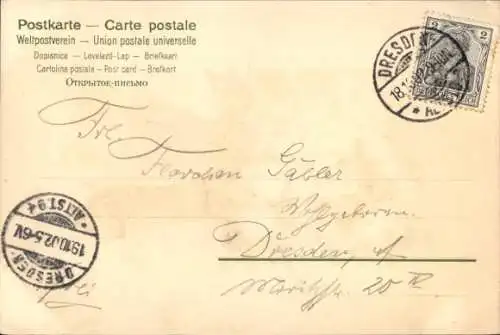 Postkarte — Carte postale
Weltpostverein — Union postale universelle
Dopisnice — Levelező-Lap — Briefkaart
Cartolina postale — Post card — Brefkort
Открытое-письмо
2 2
DRESDEN
Frl.
Florchen Gäbler
Wohlgeboren
Dresden, a/
Moritzstr. 20 IV
DRESDEN
19.10.02.5-6V.
* ALTST.9 *